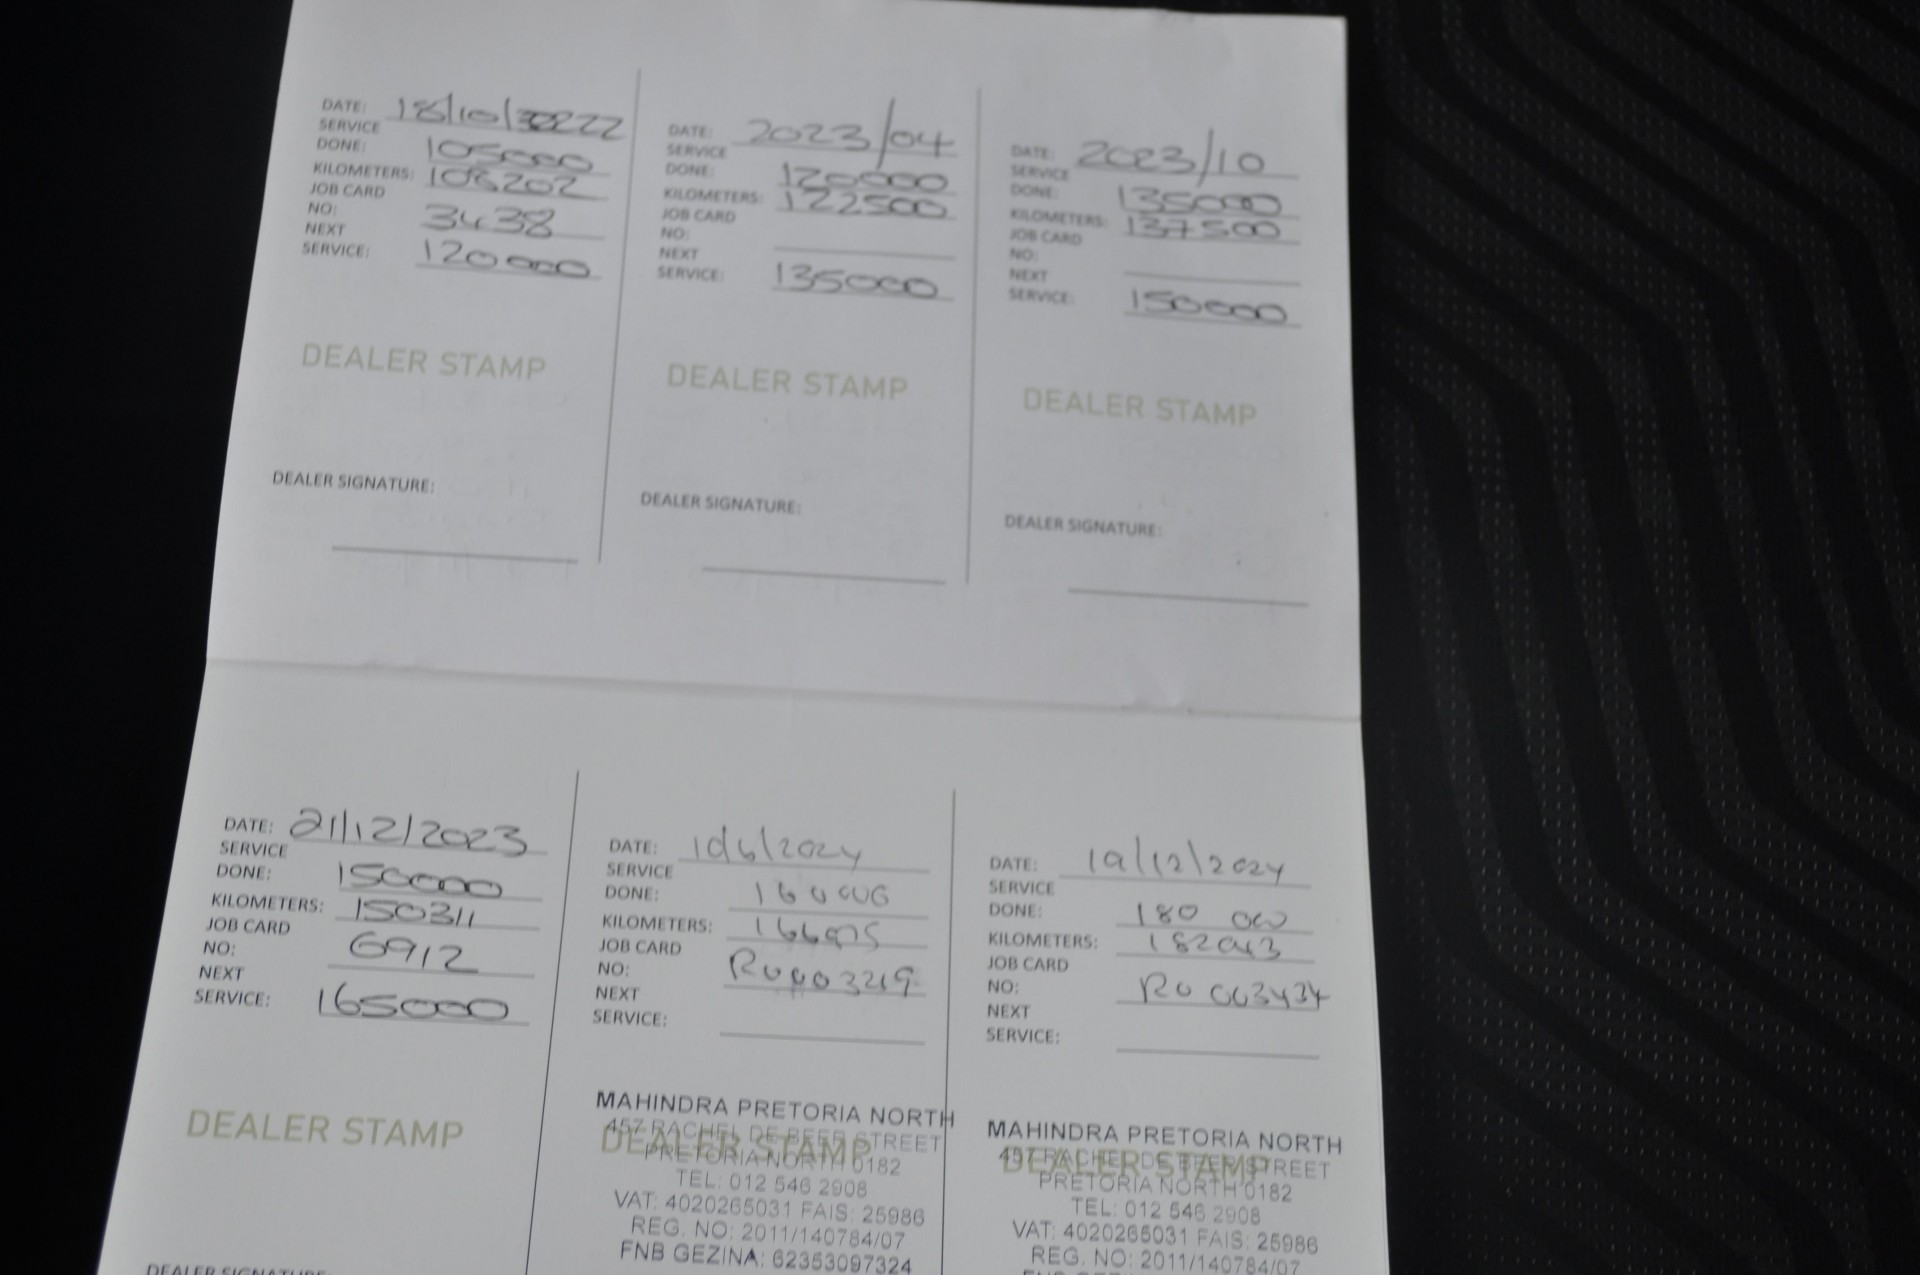 DATE: 18/10/2022
SERVICE
DONE: 105000
KILOMETERS: 108202
JOB CARD
NO: 3438
NEXT
SERVICE: 120000
DEALER STAMP
DEALER SIGNATURE:
DATE: 2023/04
SERVICE
DONE: 120000
KILOMETERS: 122500
JOB CARD
NO:
NEXT
SERVICE: 135000
DEALER STAMP
DEALER SIGNATURE:
DATE: 2023/10
SERVICE
DONE: 135000
KILOMETERS: 137500
JOB CARD
NO:
NEXT
SERVICE: 150000
DEALER STAMP
DEALER SIGNATURE:
DATE: 21/12/2023
SERVICE
DONE: 150000
KILOMETERS: 150311
JOB CARD
NO: 6912
NEXT
SERVICE: 165000
DEALER STAMP
DEALER SIGNATURE:
DATE:
SERVICE
DONE:
KILOMETERS:
JOB CARD
NO:
NEXT
SERVICE:
DEALER STAMP
MAHINDRA PRETORIA NORTH
457 RACHEL DE BEER STREET
PRETORIA NORTH 0182
TEL: 012 546 2908
VAT: 4020265031 FAIS: 25986
REG. NO: 2011/140784/07
FNB GEZINA: 62353097324
DATE:
SERVICE
DONE: 180 000
KILOMETERS:
JOB CARD
NO:
NEXT
SERVICE:
DEALER STAMP
MAHINDRA PRETORIA NORTH
457 RACHEL DE BEER STREET
PRETORIA NORTH 0182
TEL: 012 546 2908
VAT: 4020265031 FAIS: 25986
REG. NO: 2011/140784/07